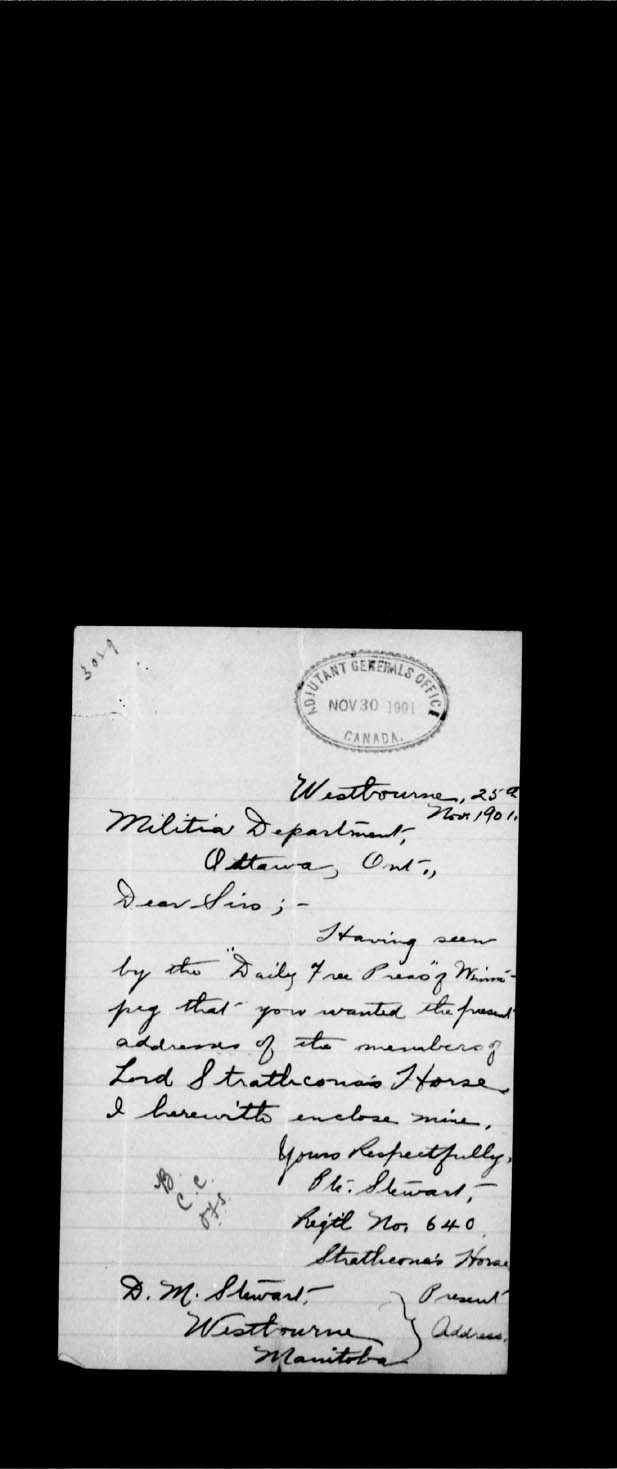 3059
ADJUTANT GENERALS OFFICE
NOV 30 1901
CANADA.
Westbourne, 25th
Nov. 1901.
Militia Department,
Ottawa, Ont.,
Dear Sirs ; -
Having seen
by the "Daily Free Press" of Winni-
peg that you wanted the present
addresses of the members of
Lord Strathcona's Horse
I herewith enclose mine.
Yours Respectfully,
Pte. Stewart,
Regtl No. 640
Strathcona's Horse
B.
C.C.
D. M. Stewart,
Westbourne
Manitoba
Present
Address.